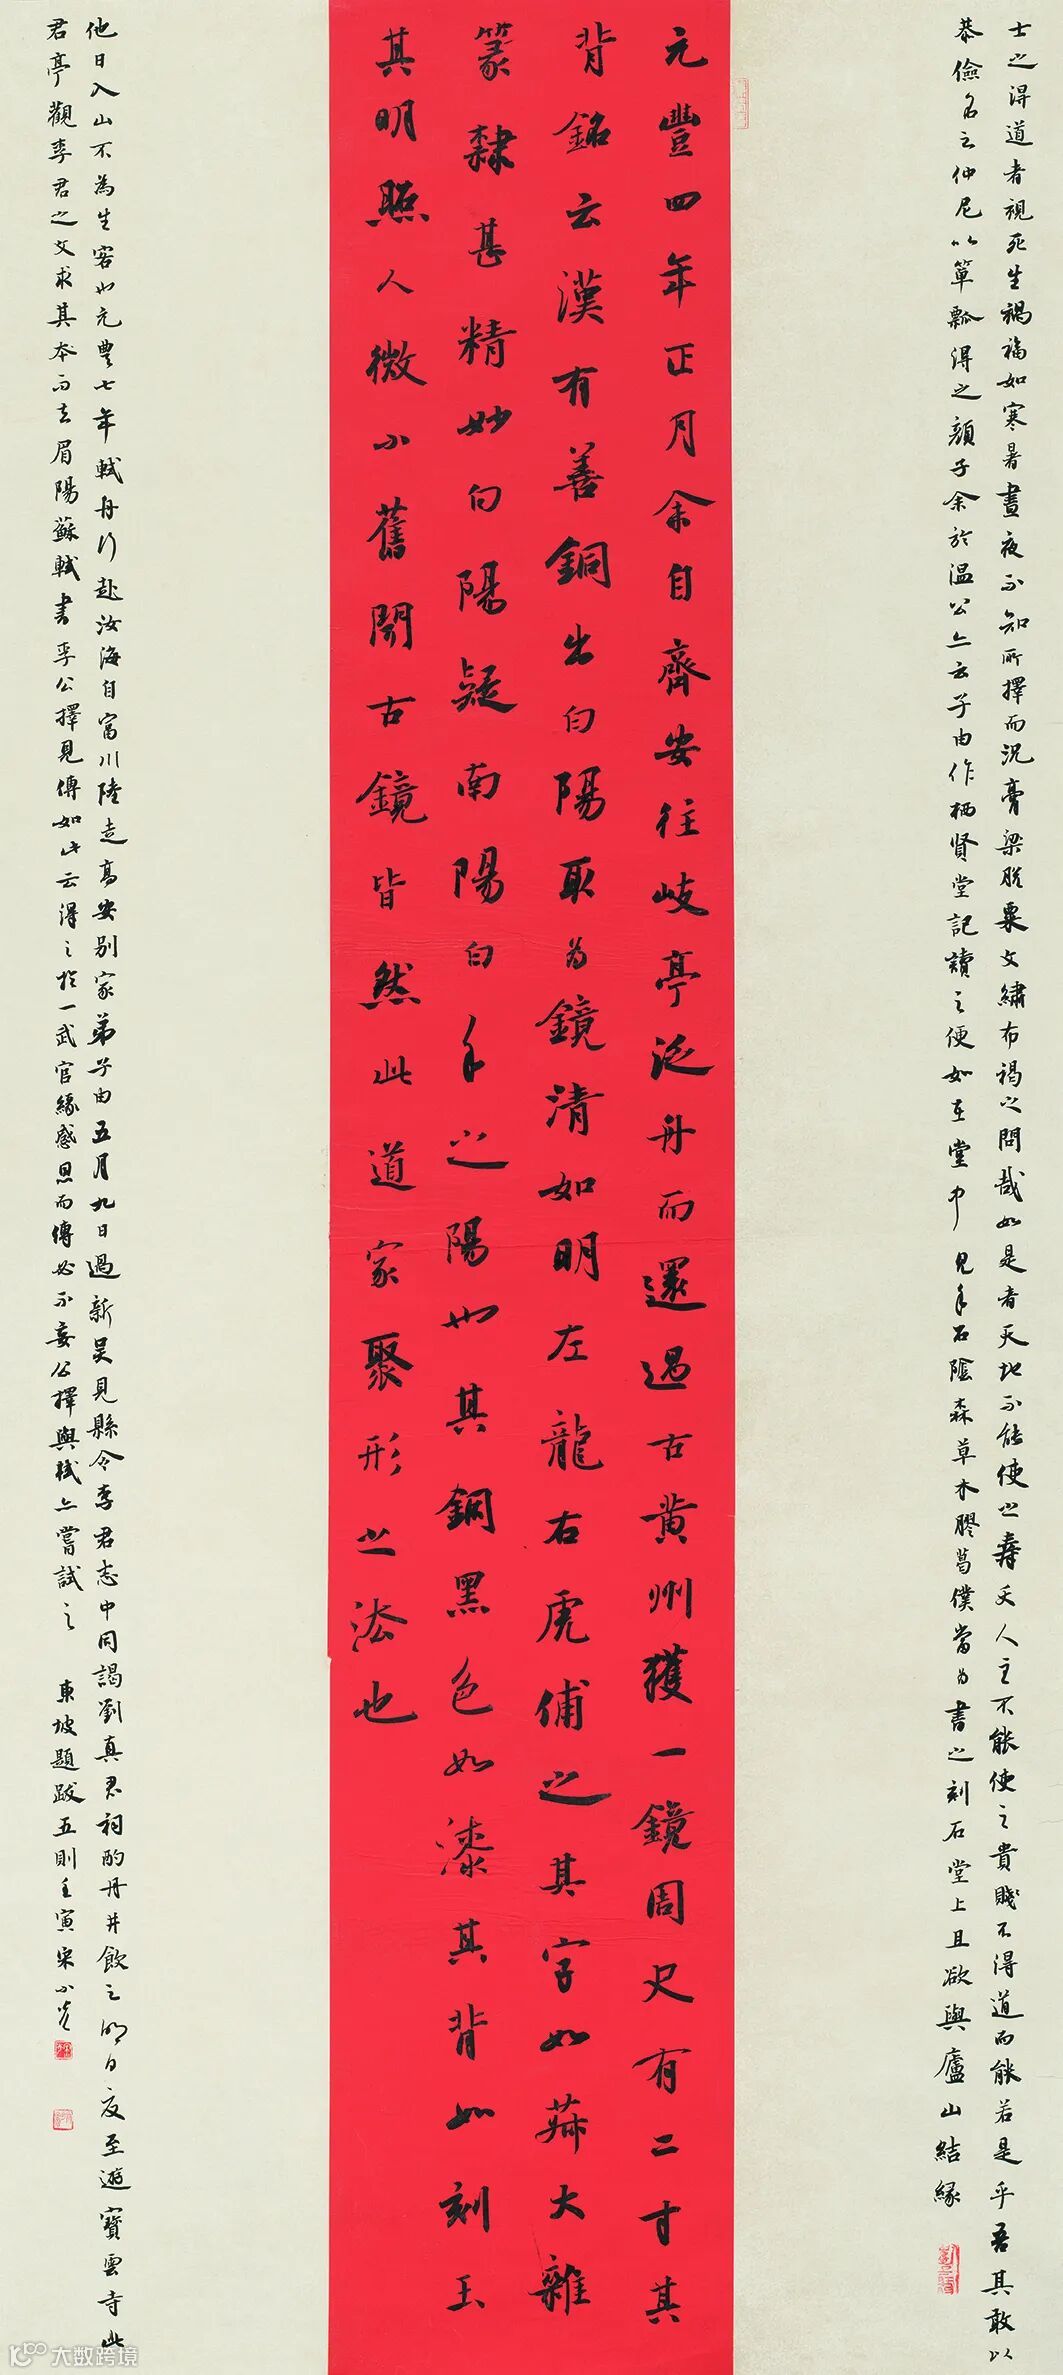 士之得道者視死生禍福如寒暑晝夜不知所擇而況膏粱脫粟文繡布褐之間哉如是者天地不能使之壽夭人主不能使之貴賤不得道而能若是乎吾其敢以
恭儉名之仲尼以簞瓢得之顏子余於溫公亦云子由作栖賢堂記讀之便如在堂中見水石陰森草木膠葛僕當為書之刻石堂上且欲與廬山結緣
元豐四年正月余自齊安往岐亭泛舟而還過古黄州獲一鏡周尺有二寸其
背銘云漢有善銅出白陽取為鏡清如明左龍右虎俌之其字如菽大雜
篆隸甚精妙白陽疑南陽白水之陽也其銅黑色如漆其背如刻玉
其明照人微小舊聞古鏡皆然此道家聚形之法也
他日入山不為生客也元豐七年軾舟行赴汝海自富川陸走高安別家弟子由五月九日過新吳見縣令李君志中同謁劉真君祠酌丹井飲之明日夜至遊寶雲寺此
君亭觀李君之文求其本而去眉陽蘇軾書李公擇見傳如此云得之於一武官緣感恩而傳必不妄公擇與軾亦嘗試之
東坡題跋五則壬寅宋小光
大数跨境